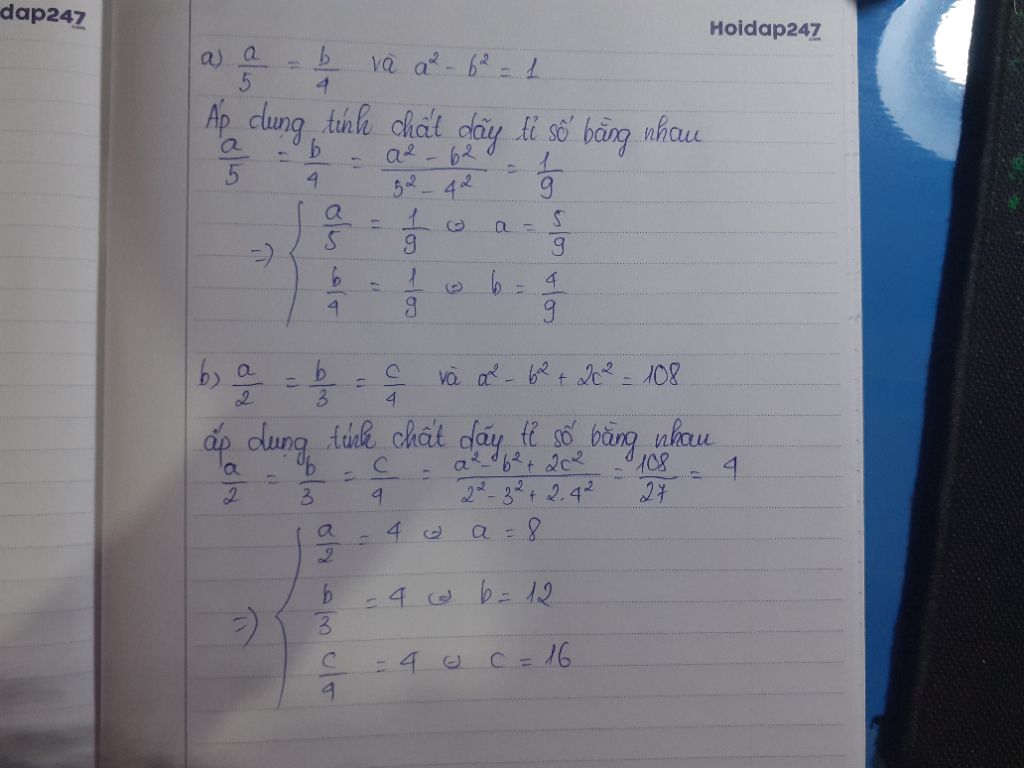 dap247
Hoidap247
a) a/5 = b/4 và a² - b² = 1
Áp dụng tính chất dãy tỉ số bằng nhau
a/5 = b/4 = (a² - b²)/(5² - 4²) = 1/9
=> { a/5 = 1/9 ⇔ a = 5/9
b/4 = 1/9 ⇔ b = 4/9
b) a/2 = b/3 = c/4 và a² - b² + 2c² = 108
áp dụng tính chất dãy tỉ số bằng nhau
a/2 = b/3 = c/4 = (a² - b² + 2c²)/(2² - 3² + 2.4²) = 108/27 = 4
=> { a/2 = 4 ⇔ a = 8
b/3 = 4 ⇔ b = 12
c/4 = 4 ⇔ c = 16